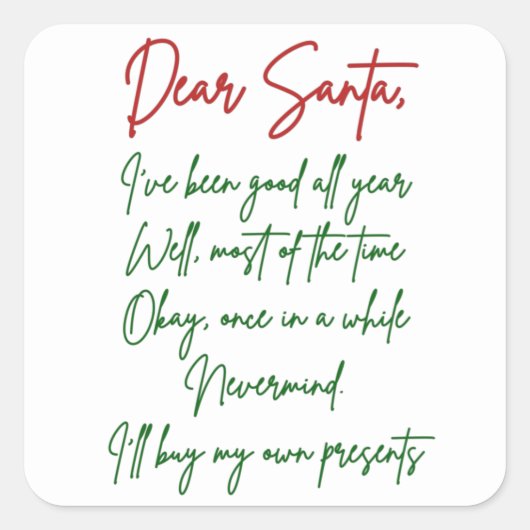 Dear Santa,
I've been good all year
Well, most of the time
Okay, once in a while
Nevermind.
I'll buy my own presents